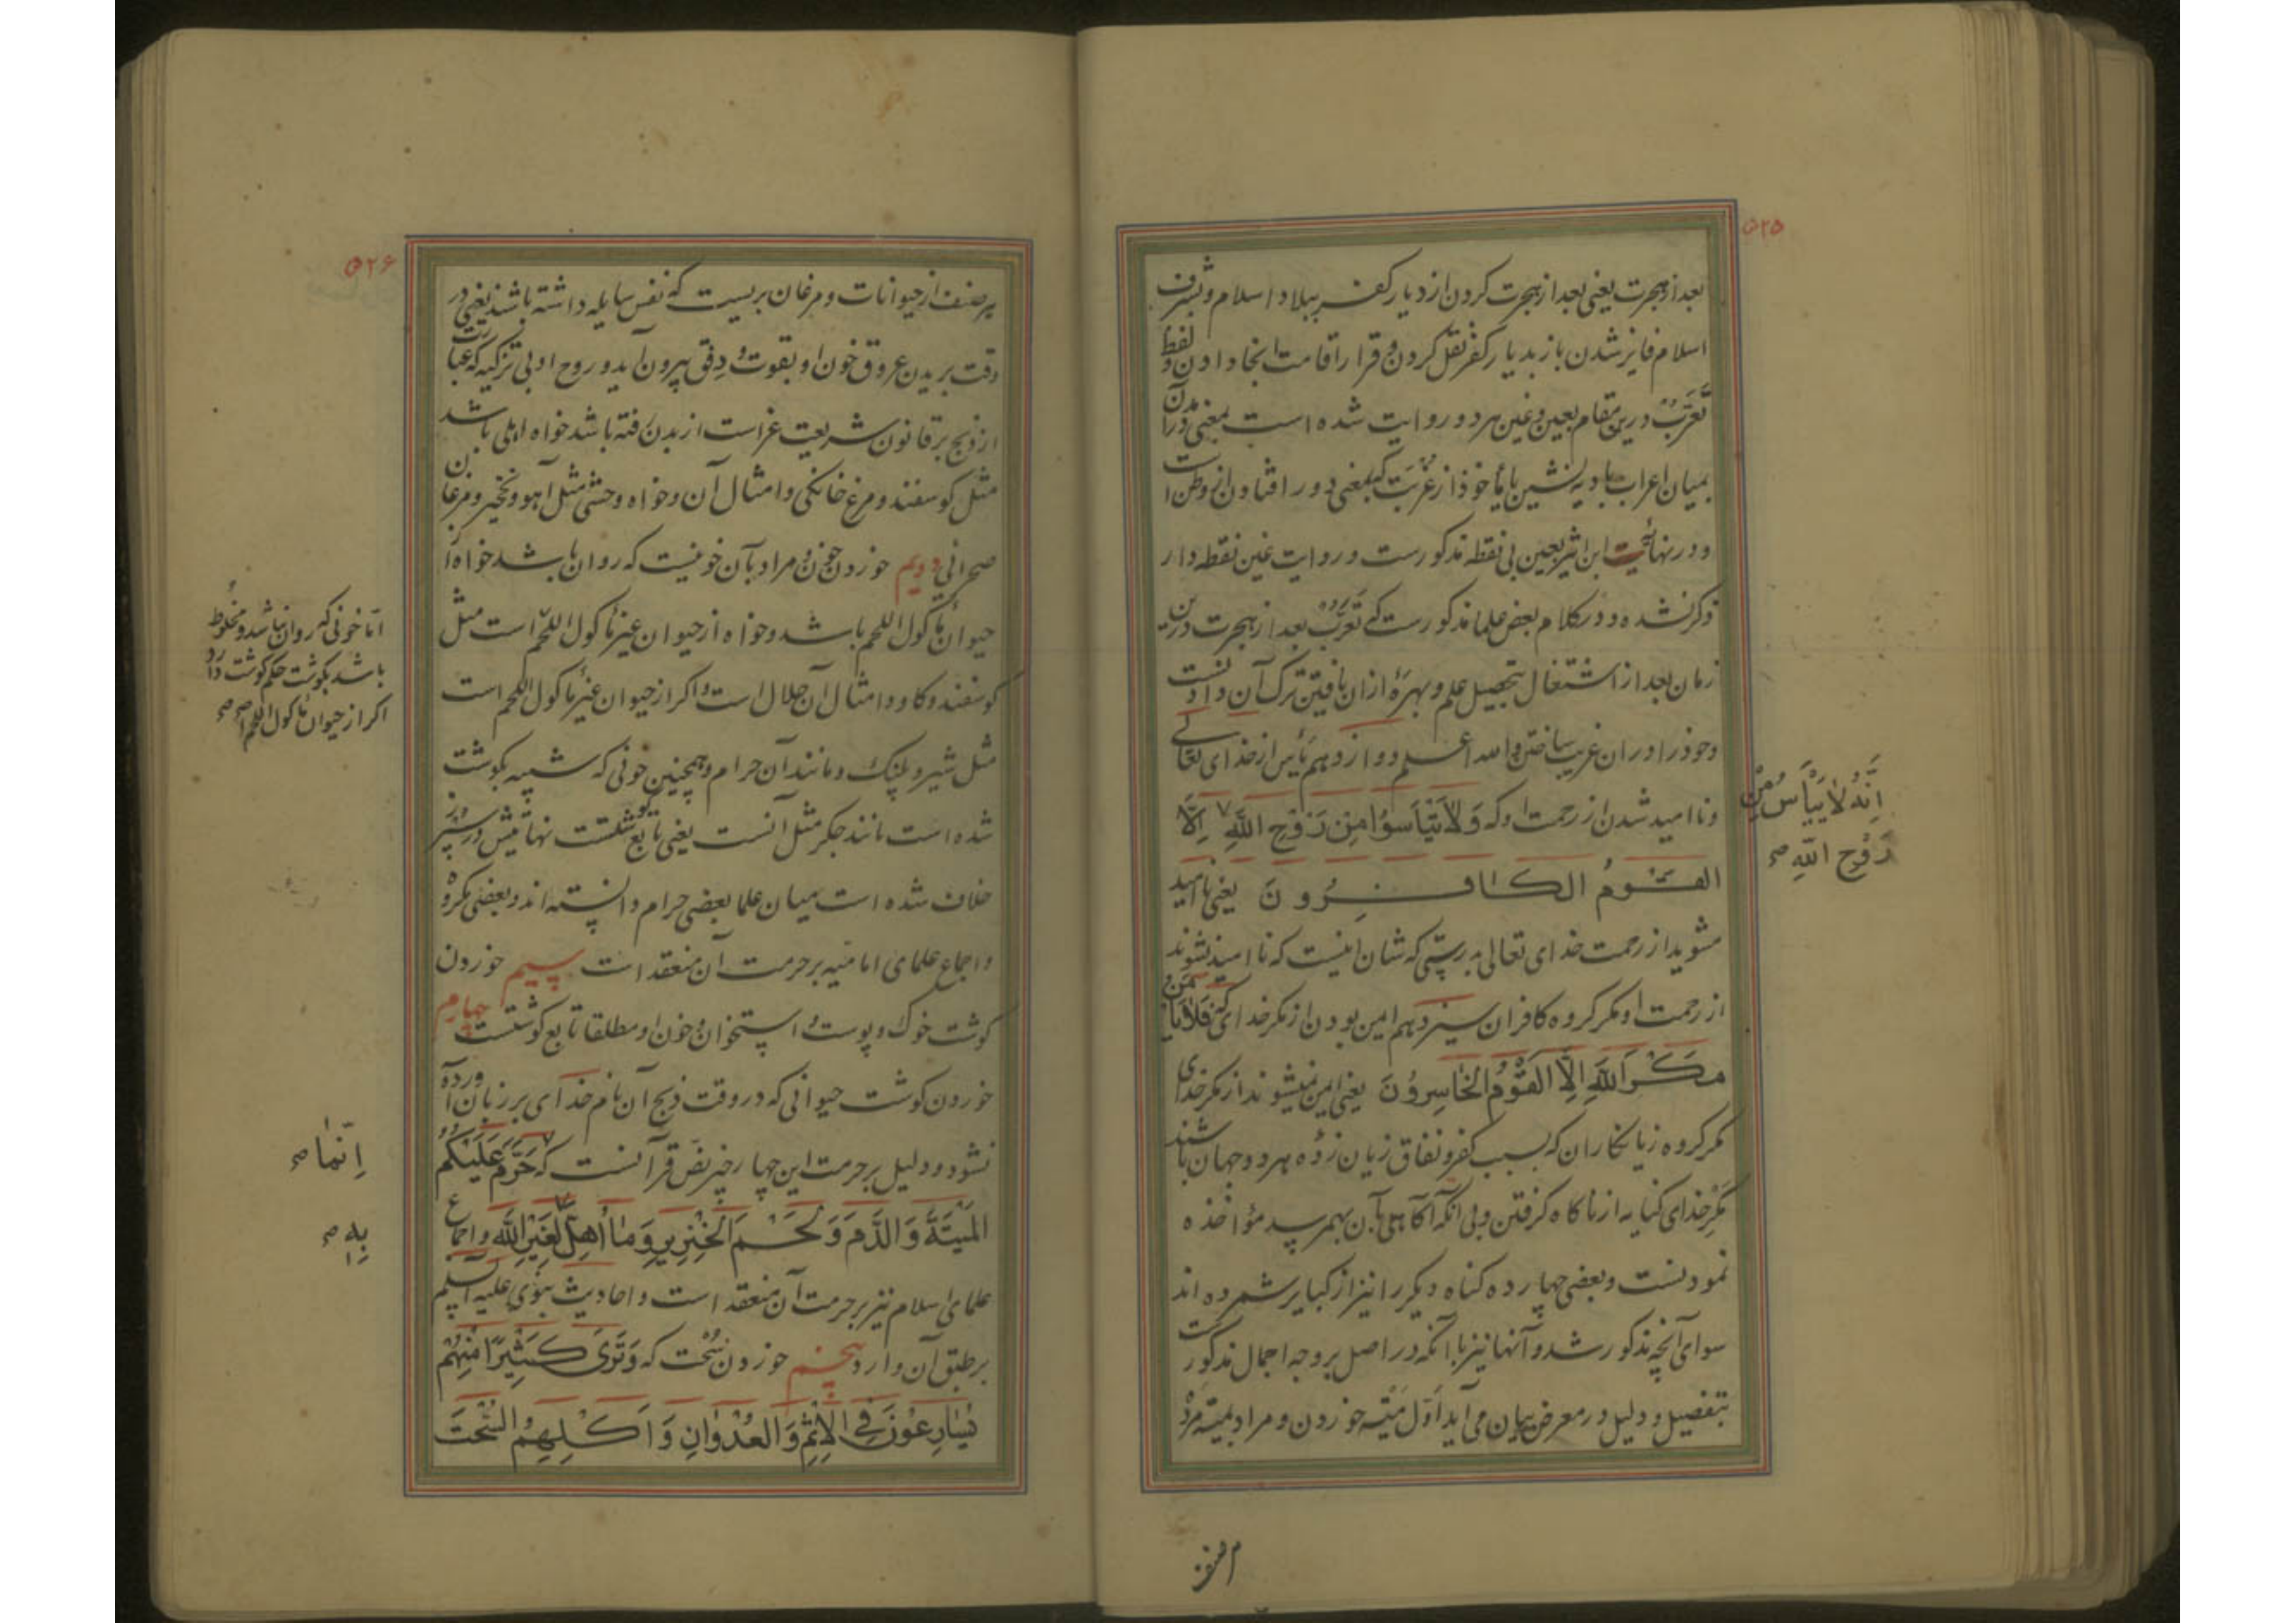 ۵۲۵
بعد از هجرت یعنی بعد از هجرت کردن از دیار کفر ببلاد اسلام و بشرف
اسلام فایز شدن باز بدیار کفر نقل کردن و قرار اقامت انجا دادن و لفظ
تعرب درین مقام بعین و غین هر دو روایت شده است بمعنی درآمدن
بمیان اعراب بادیه نشین یا ماخوذ از غربت که بمعنی دور افتادن از وطن است
و در نهایت ابن اثیر بعین بی نقطه مذکور ست و روایت غین نقطه دار
ذکر نشده و در کلام بعض علما مذکور ست که تعرب بعد از هجرت درین
زمان بعد از اشتغال بتحصیل علم و بهرهٔ از ان یافتن ترک آن دادنست
و خود را در ان غریب ساختن والله اعلم دوازدهم یأس از خدای تعالی
و ناامید شدن از رحمت او که وَلاَ تَیْأَسُوا مِن رَوْحِ اللَّهِ اِلَّا
القَوْمُ الکَافِرُونَ یعنی ناامید
مشوید از رحمت خدای تعالی بدرستی که شان اینست که ناامید نشوند
از رحمت او مکر کروه کافران سیزدهم امین بودن از مکر خدای که فَلَا یَأْمَنُ
مَکْرَ اللَّهِ اِلَّا القَوْمُ الخَاسِرُونَ یعنی امین نمیشوند از مکر خدای
مکر کروه زیانکاران که بسبب کفر و نفاق زیان زده هر دو جهان باشند
مکر خدای کنایه از ناکاه کرفتن و بی انکه آکاهی بآن بهم رسد مؤاخذه
نمودنست و بعضی چهارده کناه دیکر را نیز از کبایر شمرده اند
سوای آنچه مذکور شد و آنها نیز باآنکه در اصل بر وجه اجمال مذکور ست
بتفصیل و دلیل در معرض بیان می آید اوّل میّته خوردن و مراد بمیته مردۀ
اِنَّهُ لاَ یَیْأَسُ مِنْ
رَوْحِ اللَّهِ صح
۵۲۶
هر صنف از حیوانات و مرغان بریست که نفس سایله داشته باشند یعنی در
وقت بریدن عروق خون او بقوت و دفق بیرون آید و روح او بی تزکیه که عبارت
از ذبح بر قانون شریعت غراست از بدن رفته باشد خواه اهلی باشد
مثل کوسفند و مرغ خانکی و امثال آن و خواه وحشی مثل آهو و نخجیر و مرغان
صحرائی دویم خوردن خون و مراد بآن خونیست که روان باشد خواه از
حیوان مأکول اللحم باشد و خواه از حیوان غیر مأکول اللحم است مثل
کوسفند و کاو و امثال آن حلال است و اکر از حیوان غیر مأکول اللحم است
مثل شیر و پلنک و مانند آن حرام و همچنین خونی که شبیه بکوشت
شده است مانند جکر مثل آنست یعنی تابع کوشتست نهایتش در سپرز
خلاف شده است میان علما بعضی حرام دانسته اند و بعضی مکروه
و اجماع علمای امامیّه بر حرمت آن منعقد است سیم خوردن
کوشت خوک و پوست و استخوان و خون او مطلقا تابع کوشتست چهارم
خوردن کوشت حیوانی که در وقت ذبح آن نام خدای بر زبان آورده
نشود و دلیل بر حرمت این چهار چیز نص قرآنست که حَرَّمَ عَلَیْکُمُ
المَیْتَةَ وَ الدَّمَ وَ لَحْمَ الخِنْزِیرِ وَ مَا اُهِلَّ لِغَیْرِ اللَّهِ و اجماع
علمای اسلام نیز بر حرمت آن منعقد است و احادیث نبوی علیه السلم
بر طبق آن وارد پنجم خوردن سُحت که وَ تَرَی کَثِیرًا مِنْهُمْ
یُسَارِعُونَ فِی الاِثْمِ وَ العُدْوَانِ وَ اَکْلِهِمُ السُّحْتَ
امّا خونی که روان نباشد و مخلوط
باشد بکوشت حکم کوشت دارد
اکر از حیوان مأکول اللحم است صح
اِنَّمَا صح
بِهِ صح